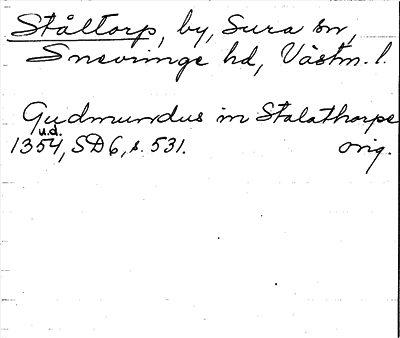 Ståltorp, by, Sura sn,
Snevringe hd, Västm. l.
Gudmundus in Stalathorpe
u.d.
1354, SD 6, s. 531. orig.